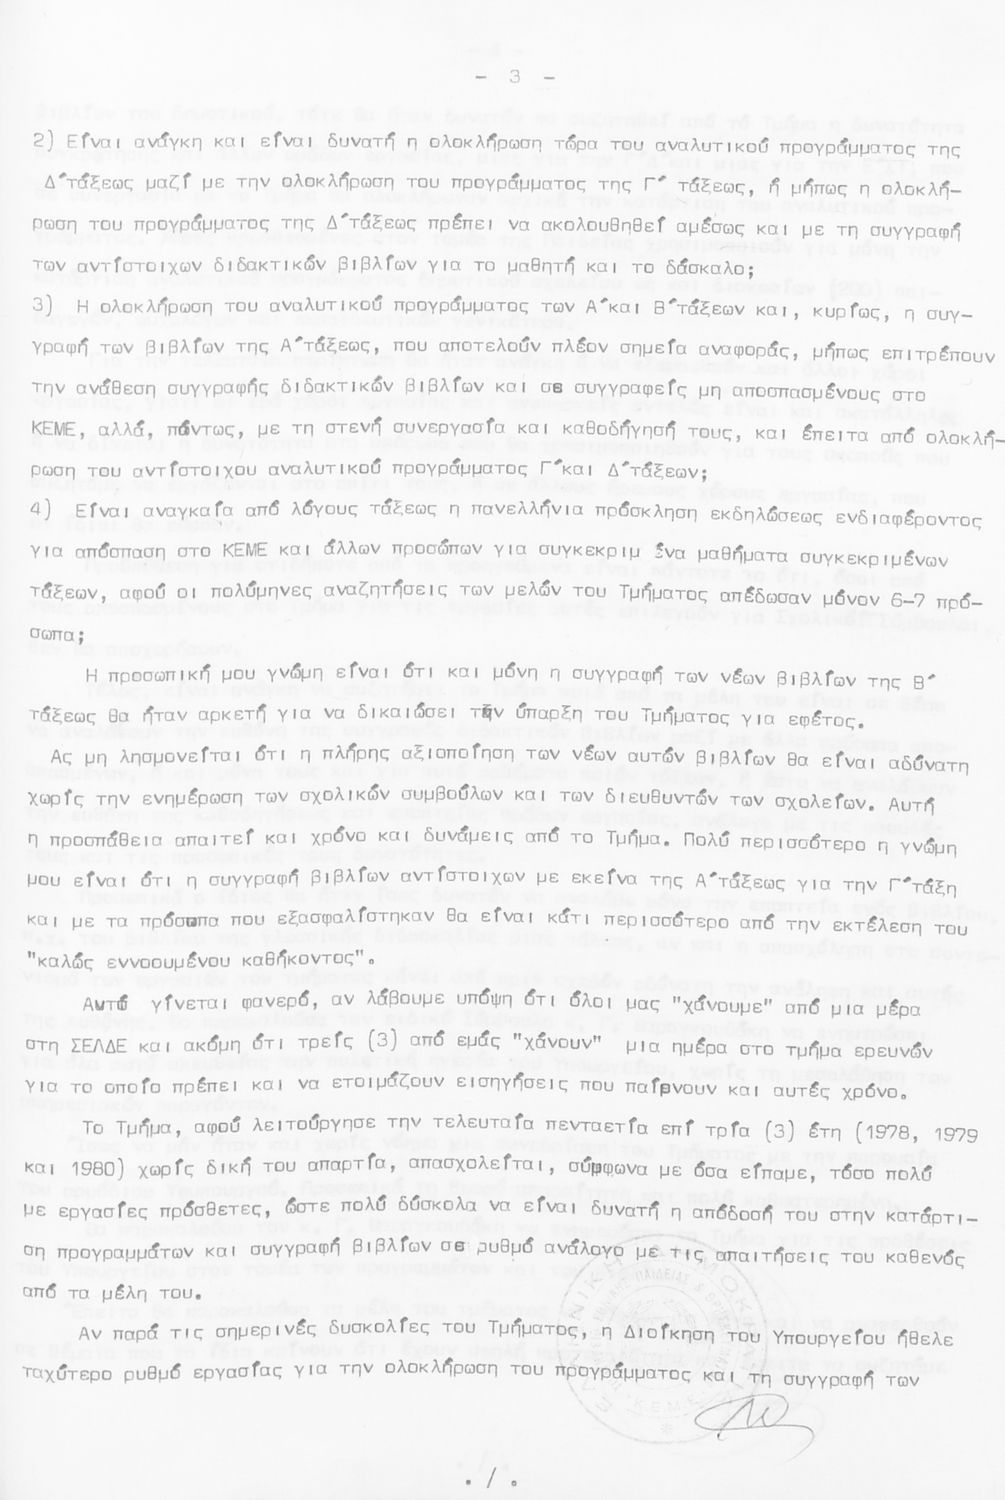 - 3 -
2) Είναι ανάγκη και είναι δυνατή η ολοκλήρωση τώρα του αναλυτικού προγράμματος της
Δ΄τάξεως μαζί με την ολοκλήρωση του προγράμματος της Γ΄ τάξεως, ή μήπως η ολοκλή-
ρωση του προγράμματος της Δ΄τάξεως πρέπει να ακολουθηθεί αμέσως και με τη συγγραφή
των αντίστοιχων διδακτικών βιβλίων για το μαθητή και το δάσκαλο;
3) Η ολοκλήρωση του αναλυτικού προγράμματος των Α΄και Β΄τάξεων και, κυρίως, η συγ-
γραφή των βιβλίων της Α΄τάξεως, που αποτελούν πλέον σημεία αναφοράς, μήπως επιτρέπουν
την ανάθεση συγγραφής διδακτικών βιβλίων και σε συγγραφείς μη αποσπασμένους στο
ΚΕΜΕ, αλλά, πάντως, με τη στενή συνεργασία και καθοδήγησή τους, και έπειτα από ολοκλή-
ρωση του αντίστοιχου αναλυτικού προγράμματος Γ΄και Δ΄τάξεων;
4) Είναι αναγκαία από λόγους τάξεως η πανελλήνια πρόσκληση εκδηλώσεως ενδιαφέροντος
για απόσπαση στο ΚΕΜΕ και άλλων προσώπων για συγκεκριμ ένα μαθήματα συγκεκριμένων
τάξεων, αφού οι πολύμηνες αναζητήσεις των μελών του Τμήματος απέδωσαν μόνον 6-7 πρό-
σωπα;
Η προσωπική μου γνώμη είναι ότι και μόνη η συγγραφή των νέων βιβλίων της Β΄
τάξεως θα ήταν αρκετή για να δικαιώσει την ύπαρξη του Τμήματος για εφέτος.
Ας μη λησμονείται ότι η πλήρης αξιοποίηση των νέων αυτών βιβλίων θα είναι αδύνατη
χωρίς την ενημέρωση των σχολικών συμβούλων και των διευθυντών των σχολείων. Αυτή
η προσπάθεια απαιτεί και χρόνο και δυνάμεις από το Τμήμα. Πολύ περισσότερο η γνώμη
μου είναι ότι η συγγραφή βιβλίων αντίστοιχων με εκείνα της Α΄τάξεως για την Γ΄τάξη
και με τα πρόσωπα που εξασφαλίστηκαν θα είναι κάτι περισσότερο από την εκτέλεση του
"καλώς εννοουμένου καθήκοντος".
Αυτό γίνεται φανερό, αν λάβουμε υπόψη ότι όλοι μας "χάνουμε" από μια μέρα
στη ΣΕΛΔΕ και ακόμη ότι τρείς (3) από εμάς "χάνουν" μια ημέρα στο τμήμα ερευνών
για το οποίο πρέπει και να ετοιμάζουν εισηγήσεις που παίρνουν και αυτές χρόνο.
Το Τμήμα, αφού λειτούργησε την τελευταία πενταετία επί τρία (3) έτη (1978, 1979
και 1980) χωρίς δική του απαρτία, απασχολείται, σύμφωνα με όσα είπαμε, τόσο πολύ
με εργασίες πρόσθετες, ώστε πολύ δύσκολα να είναι δυνατή η απόδοσή του στην κατάρτι-
ση προγραμμάτων και συγγραφή βιβλίων σε ρυθμό ανάλογο με τις απαιτήσεις του καθενός
από τα μέλη του.
Αν παρά τις σημερινές δυσκολίες του Τμήματος, η Διοίκηση του Υπουργείου ήθελε
ταχύτερο ρυθμό εργασίας για την ολοκλήρωση του προγράμματος και τη συγγραφή των
Κ.Ε.Μ.Ε.
./.